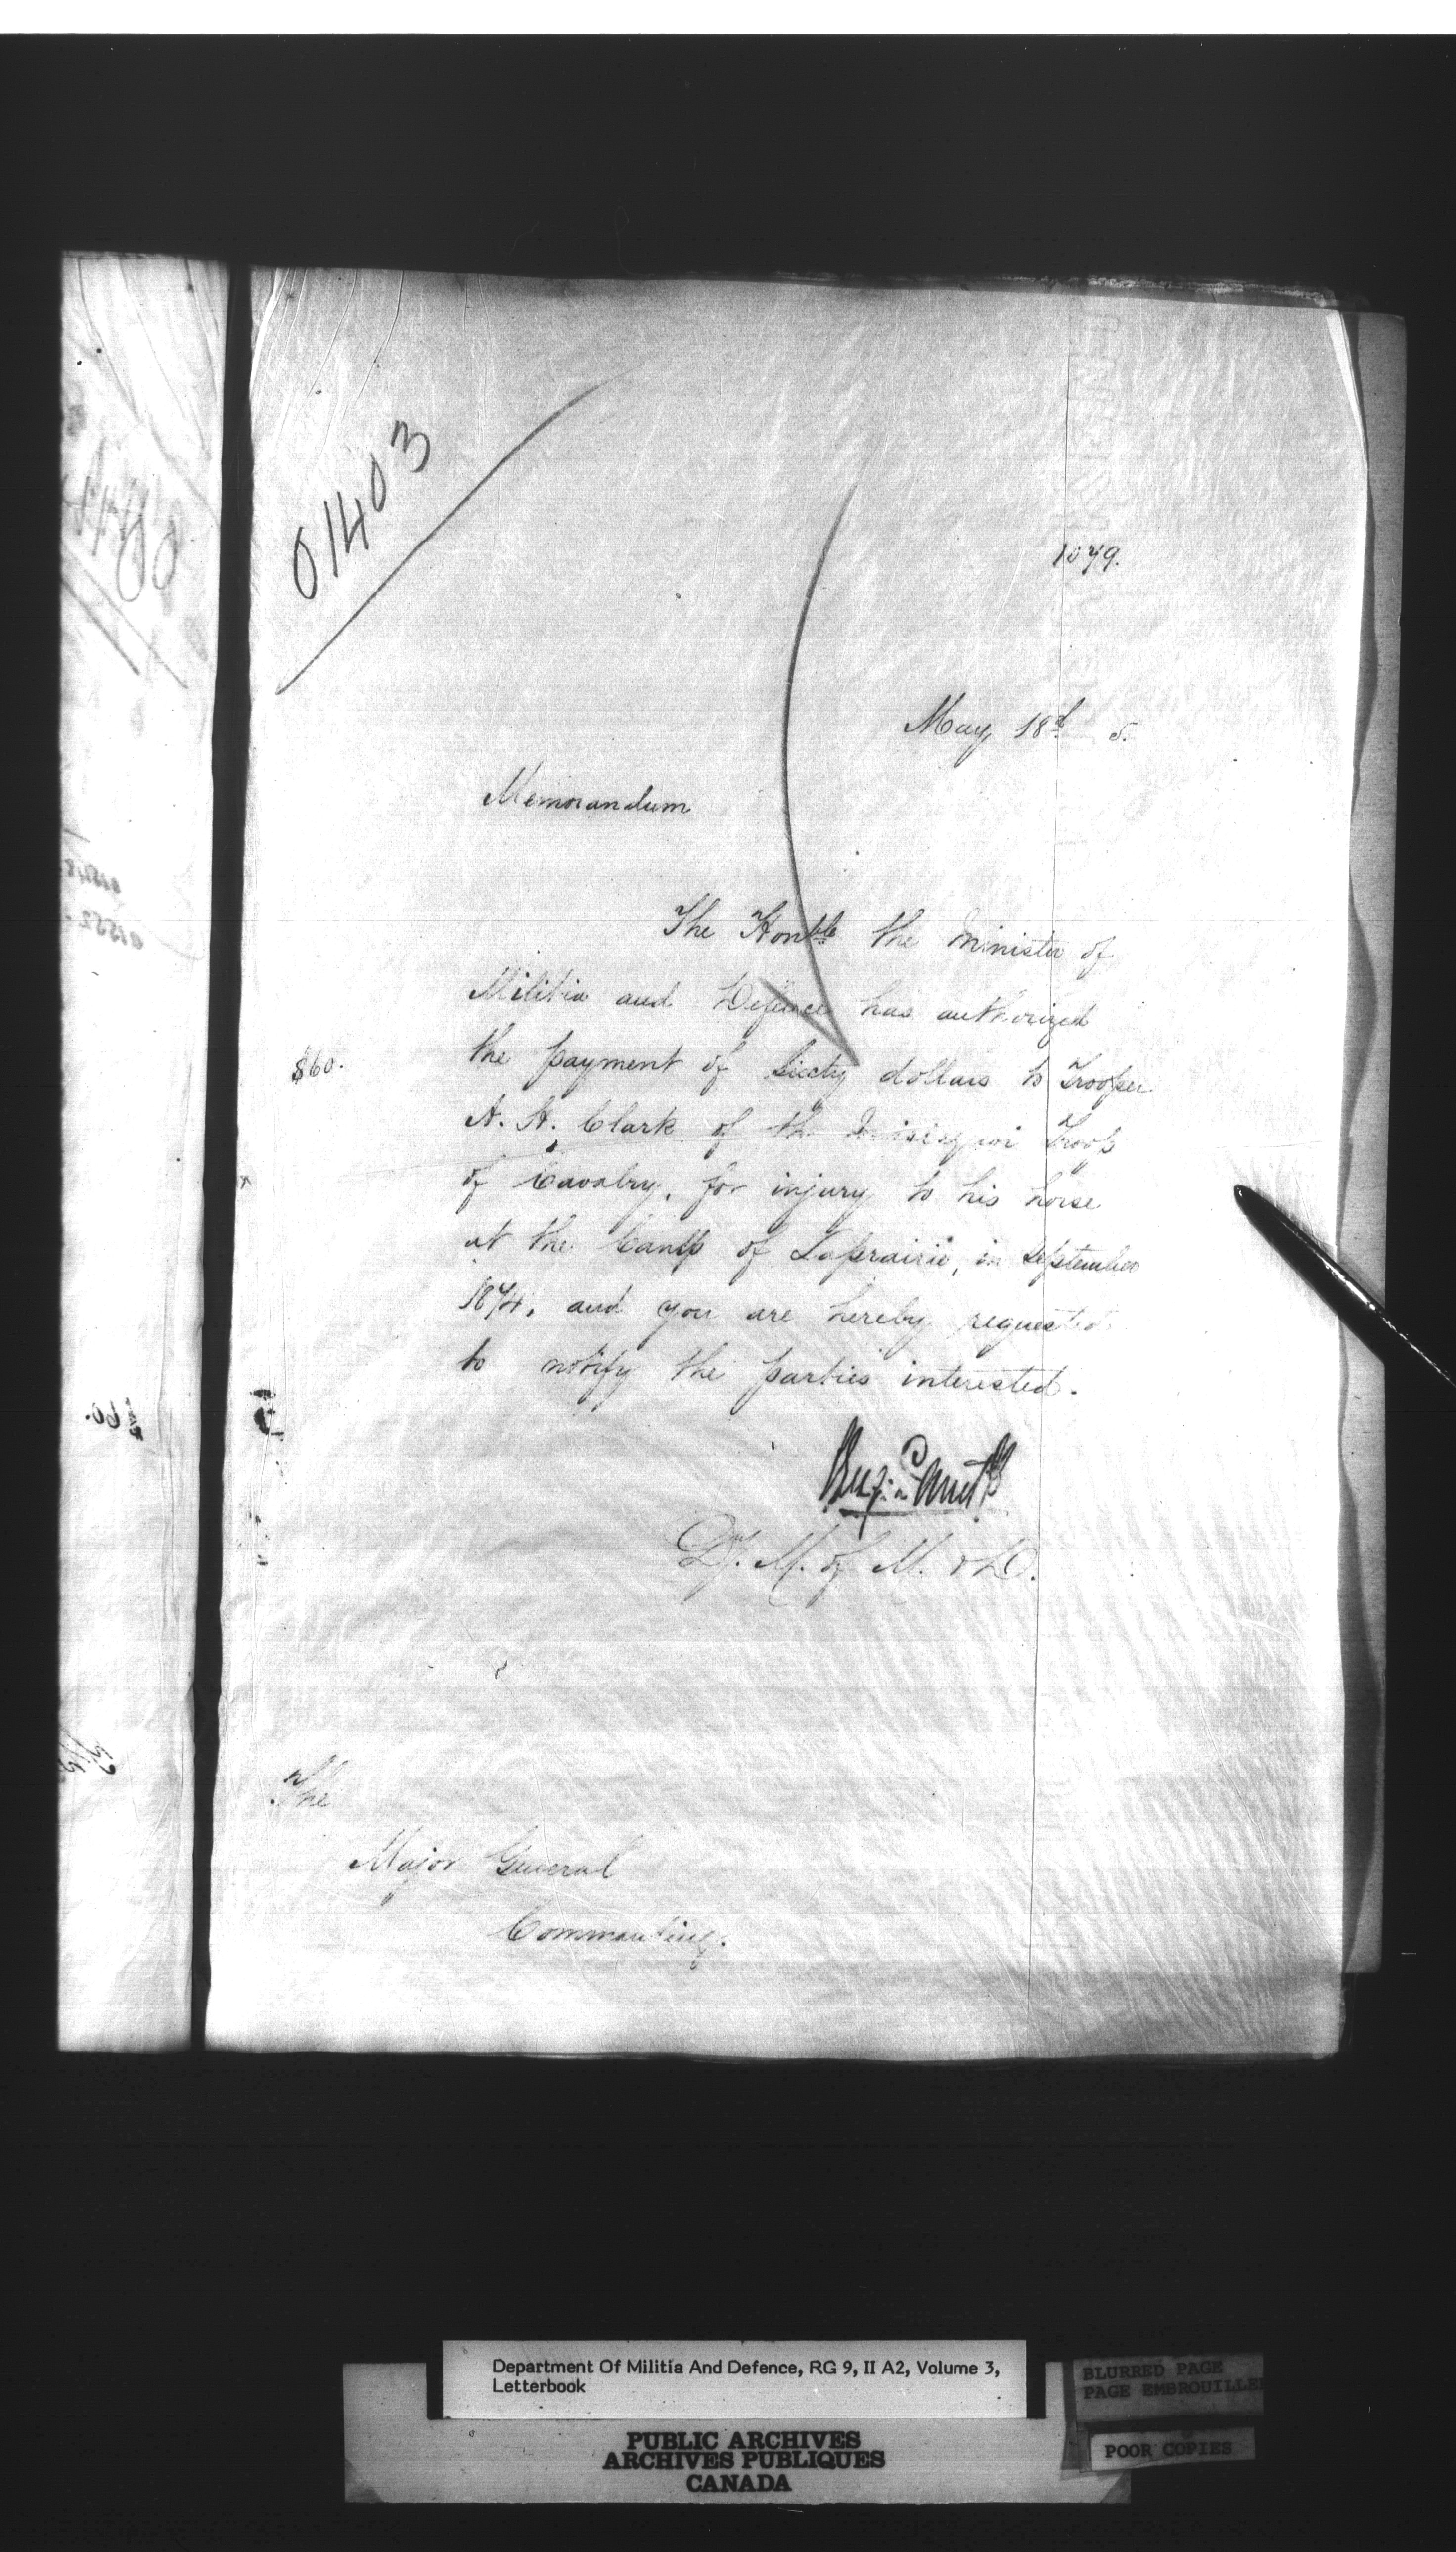 01403
1079.
May, 18th 5.
Memorandum
The Honble the Minister of
Militia and Defence has authorized
$60. the payment of Sixty dollars to Trooper
A. H. Clark of the Troop
of Cavalry, for injury to his horse
at the Camp of Laprairie, in September
1874, and you are hereby requested
to notify the parties interested.
Dy. M. of M. & D.
The
Major General
Commanding.
Department Of Militia And Defence, RG 9, II A2, Volume 3,
Letterbook
PUBLIC ARCHIVES
ARCHIVES PUBLIQUES
CANADA
BLURRED PAGE
PAGE EMBROUILLEE
POOR COPIES